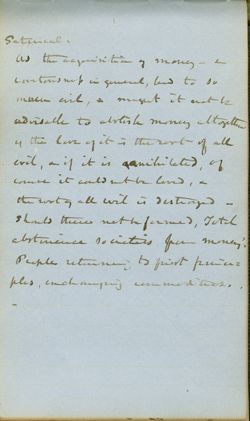 Satirical.
As the acquisition of money – &
covetousness in general, led to so
much evil, & might it not be
advisable to abolish money altogether
if the love of it is the root of all
evil, & if it is annihilated, of
course it could not be loved, &
the root of all evil is destroyed –
Should there not be formed, Total
abstinence societies from money?
People returning to first princi-
ples, exchanging commodities.
–